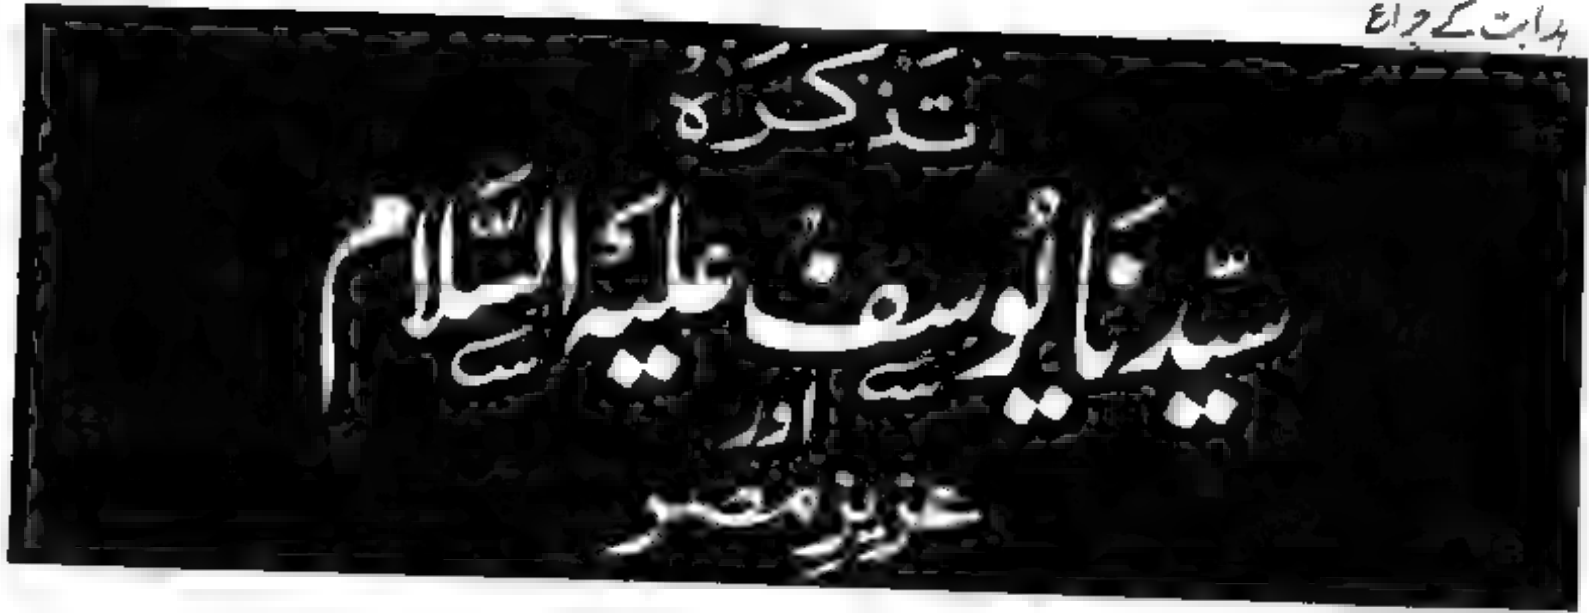 ہدایت کے چراغ
تَذکرَہُ
سَیِّدنَا یُوسفُ عَلیہِ السَّلام
اور
عزیزِ مصر